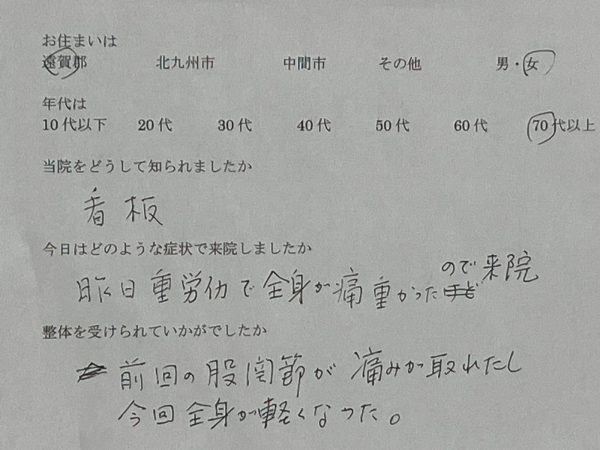 お住まいは
遠賀郡 北九州市 中間市 その他 男・女
年代は
10代以下 20代 30代 40代 50代 60代 70代以上
当院をどうして知られましたか
看板
今日はどのような症状で来院しましたか
昨日重労働で全身が痛重かったので来院
整体を受けられていかがでしたか
前回の股関節が痛みが取れたし
今回全身が軽くなった。